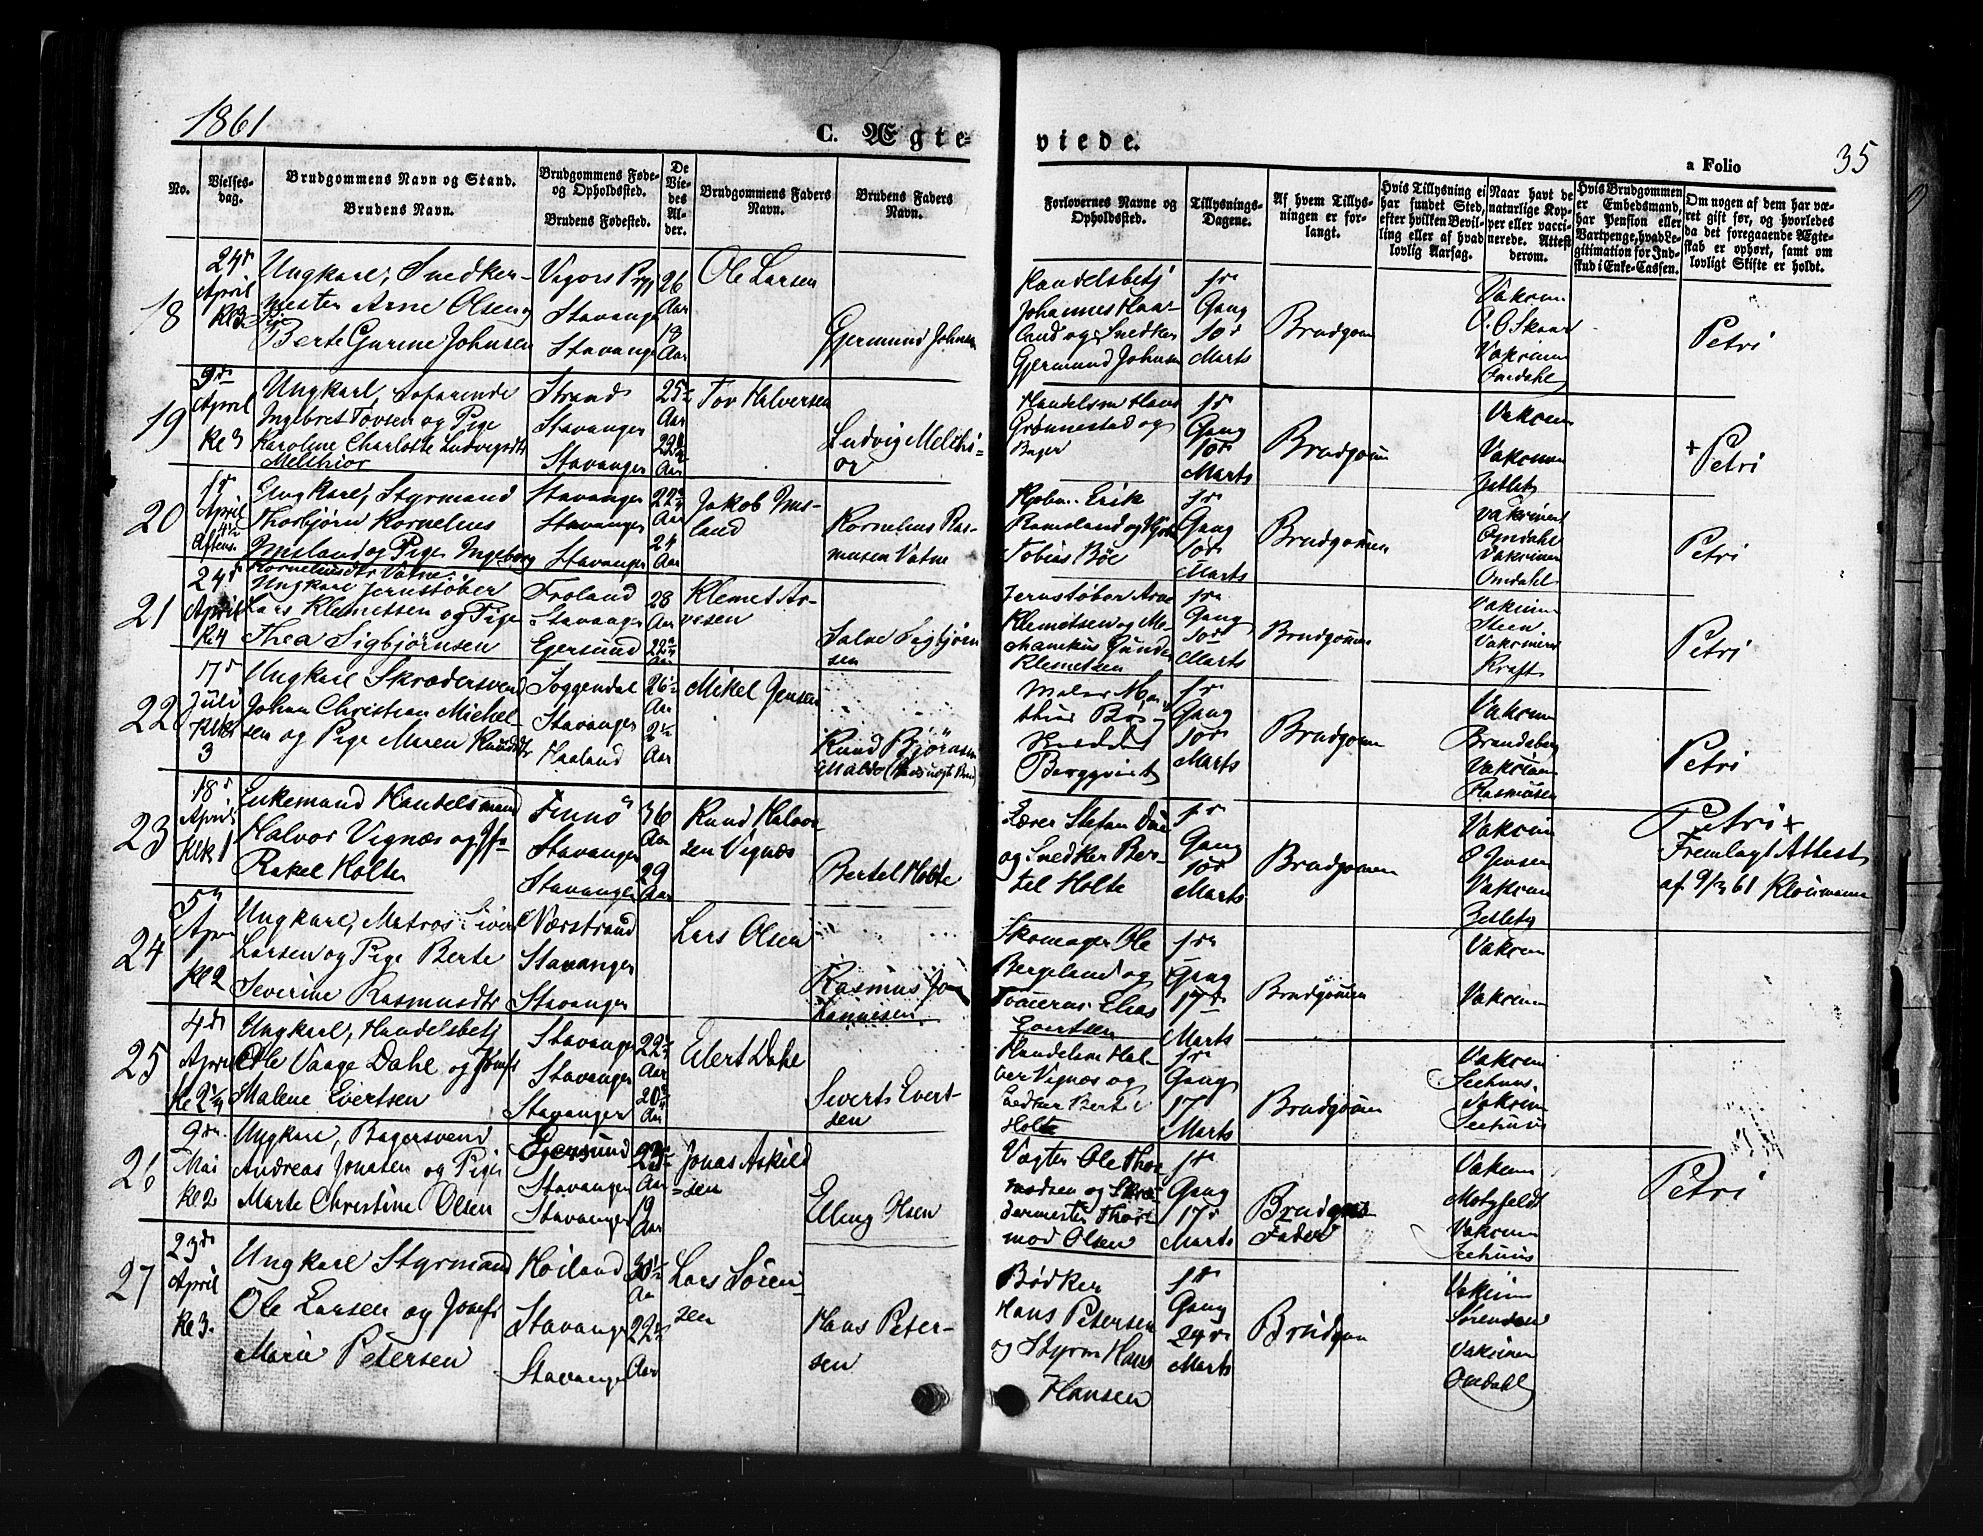 1861
C. Ægte-
viede.
a Folio
35
No.
Vielses-
dag.
Brudgommens Navn og Stand.
Brudens Navn.
Brudgommens Føde-
og Opholdssted.
Brudens Fødested.
De
Vie-
des
Al-
der.
Brudgommens Faders
Navn.
Brudens Faders
Navn.
Forlovernes Navne og
Opholdssted.
Tillysnings-
Dagene.
Af hvem Tillys-
ningen er for-
langt.
Hvis Tillysning ei
har fundet Sted,
efter hvilken Bevil-
ling eller af hvad
lovlig Aarsag.
Naar havt de
naturlige Kop-
per eller vacci-
nerede. Attest
derom.
Hvis Brudgommen
er Embedsmand,
har Pension eller
Vartpenge, hvad Le-
gitimation for Ind-
skud i Enke-Cassen.
Om nogen af dem har væ-
ret gift før, og hvorledes
da det foregaaende Ægte-
skab er ophørt, samt om
lovligt Skifte er holdt.
18
24de
April
Kl 3
Ungkarl, Snedker-
mester Arne Olsen og
Pige
Berte Gurine Johnsen
Stavanger
Stavanger
26
Aar
19
Aar
Ole Larsen
Gjermund Johnsen
Handelsbetj
Johannes Haa-
land og Snedker
Gjermund Johnsen
1ste
Gang
10de
Marts
Brudgom
Vakcin
O. O. Skaar
Vakcinen
Omdahl
Petri
19
9de
April
Kl 3
Ungkarl, Søfarende
Ingebret Tovsen og Pige
Karoline Charlotte Ludvigsdtr
Melchior
Strand
Stavanger
Stavanger
25
Aar
22
Aar
Tov Halversen
Ludvig Melchi-
or
Handelsm Hans
Grønnestad og
Bager
1ste
Gang
10de
Marts
Brudgom
Vakcin
Vakcinen
+ Petri
20
1ste
April
4½
Aften
Ungkarl, Styrmand
Thorbjørn Kornelius
Imsland og Pige Ingeborg
Korneliusdtr Vatne
Stavanger
Stavanger
Stavanger
22
Aar
24
Aar
Jakob Ims-
land
Kornelius Ras-
musen Vatne
Kjøbm. Erik
Ramsland og
Tobias Bøe
1ste
Gang
10de
Marts
Brudgommen
Vakcinen
Omdahl
Vakcinen
Omdahl
Petri
21
24de
April
Kl 4
Ungkarl Jernstøber
Lars Klemetsen og Pige
Thea Sigbjørnsen
Froland
Stavanger
Egersund
28
Aar
22
Aar
Klemet Ar-
vesen
Salve Sigbjørn
sen
Jernstøber Arne
Klemetsen og Me-
chanikus Gunder
Klemetsen
1ste
Gang
10de
Marts
Brudgommen
Vakcinen
Steen
Vakcinen
Kraft
Petri
22
17de
Juli
Klk
3
Ungkarl Skrædersvend
Johan Christian Michel-
sen og Pige Maren Knudsdtr
Soggendal
Stavanger
Haaland
26½
Aar
Aar
Mikel Jensen
Knud Bjørnsen
Maler
Berggvist
1ste
Gang
10de
Marts
Brudgommen
Vakcinen
Brandsberg
Vakcinen
Rasmusen
Petri
23
18de
April
Klk 1
Enkemand Handelsmand
Halvor Vignæs og Jfr
Rakel Holte
Finnø
Stavanger
Stavanger
36
Aar
29
Aar
Knud Halvor-
sen Vignæs
Bertel Holte
Lærer Stefan
og Snedker Ber-
tel Holte
1ste
Gang
10de
Marts
Brudgommen
Vakcin
O Jensen
Vakcinen
Petri +
Fremlagt Attest
af 9/3 61
24
5te
April
Kl 2
Ungkarl, Matros Siver
Larsen og Pige Berte
Severine Rasmusdtr
Nærstrand
Stavanger
Stavanger
Lars Olsen
Rasmus
Skomager Ole
Bergeland og
Elias
Evertsen
1ste
Gang
17de
Marts
Brudgommen
Vakcin
Vakcinen
25
4de
April
Kl 2¼
Ungkarl, Handelsbetj
Ole Vaage Dahl og Jomfr
Malene Evertsen
Stavanger
Stavanger
Stavanger
22
Aar
20
Aar
Eilert Dahl
Severts Evert-
sen
Handelsm Hal-
vor Vignæs og
Snedker Bertel
Holte
1ste
Gang
17
Marts
Brudgommen
Vakcin
Seehuus
Vakcin
Seehuus
26
9de
Mai
Kl 2
Ungkarl, Bagersvend
Andreas Jonasen og Pige
Marte Christine Olsen
Egersund
Stavanger
Stavanger
23
Aar
19
Aar
Jonas Askild
-sen
Elling Olsen
Vægter Ole Thor
modsen og Skræ-
dermester Thor
mod Olsen
1ste
Gang
17de
Marts
Brudgom
Fader
Vakcin
Motzfeldt
Vakcin
Seehuus
Petri
27
23de
April
Kl 3.
Ungkarl Styrmand
Ole Larsen og Jomfr
Marie Petersen
Høiland
Stavanger
Stavanger
30½
Aar
22½
Aar
Lars Søren-
sen
Hans Peter-
sen
Bødker
Hans Petersen
og Styrm Hans
Hansen
1ste
Gang
24de
Marts
Brudgom
Vakcin
Sørensen
Vakcinen
Omdahl